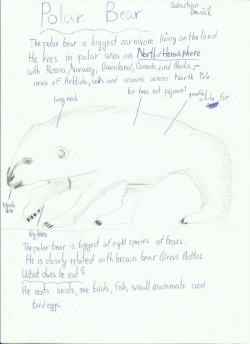 Polar Bear
Sebastian
The polar bear is biggest carnivore living on the land.
He lives in polar area on North Hemisphere
with Russia, Norway, Greenland, Canada and Alaska,
area of Arktida, seas and oceans across North Pole.
long neck
fur has not pigment
white fur
black skin
big paws
The polar bear is biggest of eight species of bears.
He is closely related with brown bear Ursus Arctos
What does he eat?
He eats seals, see birds, fish, small mammals and
bird eggs.